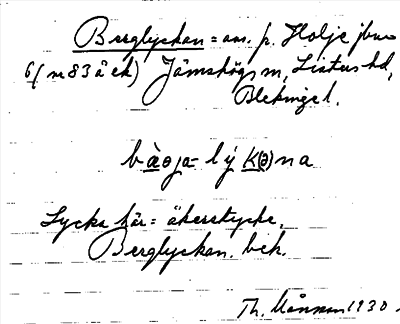 Berglyckan = om. p. Holje jbno
6/ (n 83 å ek) Jämshögs sn, Listers hd,
Blekinge l.
bàəja- lý K(ə)na
Lycka här = åkerstycke.
Berglyckan. bek.
Th. Månsson 1930.